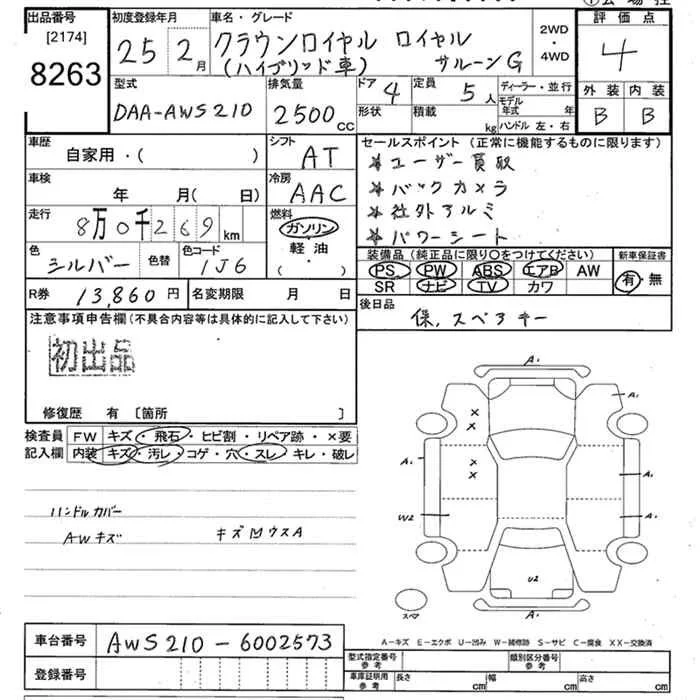 出品番号
[2174]
8263
初度登録年月
25 2月
車名・グレード
クラウンロイヤル ロイヤル
(ハイブリッド車) サルーンG
2WD
・
4WD
評価点
4
外装 内装
B B
型式
DAA-AWS210
排気量
2500cc
ドア 4
形状
定員 5人
積載 kg
ディーラー・並行
モデル年式 年
ハンドル 左・右
車歴
自家用・( )
シフト
AT
車検
年 月(日)
冷房
AAC
走行
8万0千269km
燃料
ガソリン
軽油
( ・ )
色
シルバー
色替
色コード
1J6
R券 13,860円
名変期限 月 日
セールスポイント(正常に機能するものに限ります)
* ユーザー買取
* バックカメラ
* 社外アルミ
* パワーシート
装備品(純正品に限り○をつけてください)
PS PW ABS エアB AW
SR ナビ TV カワ
新車保証書
有・無
後日品
保、スペアキー
注意事項申告欄(不具合内容等は具体的に記入して下さい)
初出品
修復歴 有〔箇所 〕
検査員記入欄
FW キズ・飛石・ヒビ割・リペア跡・×要
内装 キズ・汚レ・コゲ・穴・スレ・キレ・破レ
ハンドルカバー
AWキズ キズ凹ウスA
A1
A1
A1
A1
W2
A1
U2
A1
スペア
A-キズ E-エクボ U-凹み W-補修跡 S-サビ C-腐食 XX-交換済
車台番号 AWS210-6002573
登録番号
型式指定番号 参考
類別区分番号 参考
車庫証明用 参考
長さ cm 幅 cm 高さ cm